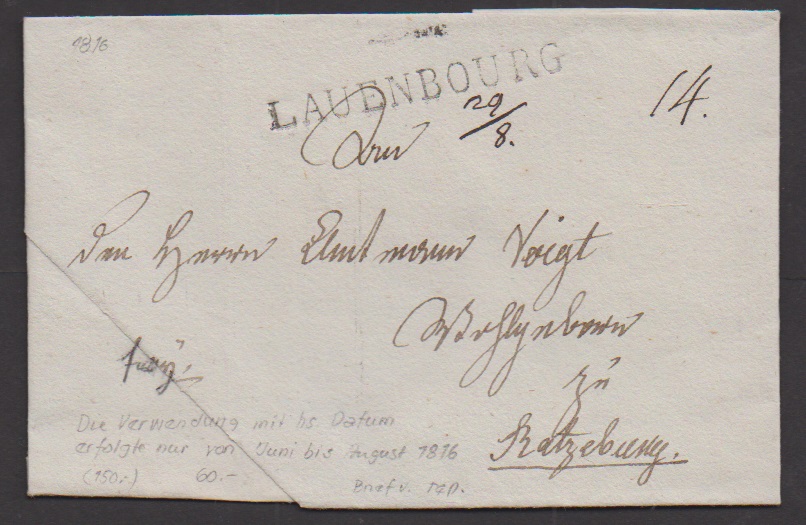 1816
LAUENBOURG
An 29/8. 14.
den Herrn Amtmann Voigt
Wohlgeborn
zu
Ratzeburg.
Die Verwendung mit hs. Datum
erfolgte nur von Juni bis August 1816
(150.-) 60.-
Brief v.